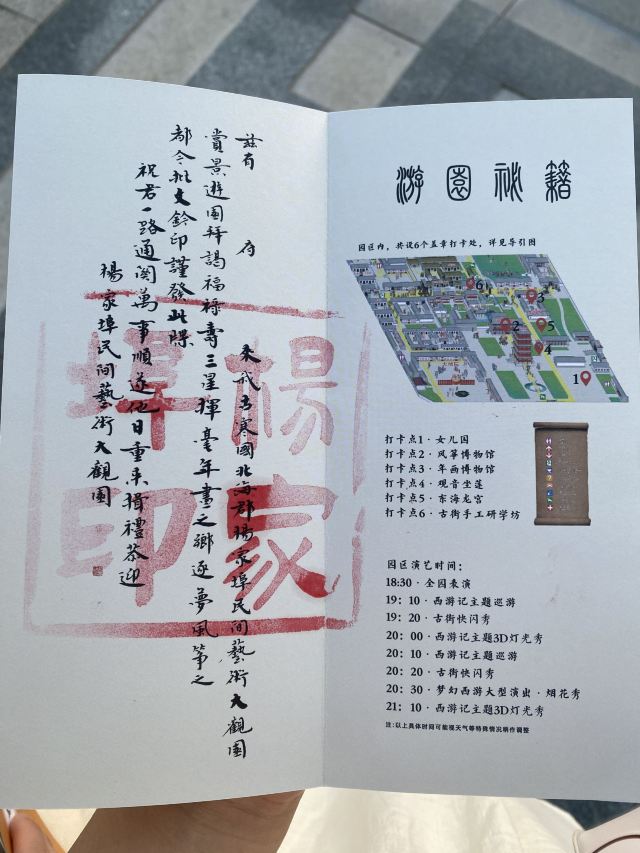 茲有 府 来我古寒國北海郡楊家埠民間藝術大觀園
賞景遊園拜謁福祿壽三星揮毫年畫之鄉逐夢風箏之
都今批文鈐印謹發此牒
祝君一路通関萬事順遂他日重来揖禮恭迎
楊家埠民間藝術大觀園
楊家
埠印
游園祕籍
园区内，共设6个盖章打卡处，详见导引图
6
3
2
5
4
1
打卡点1·女儿国
打卡点2·风筝博物馆
打卡点3·年画博物馆
打卡点4·观音坐莲
打卡点5·东海龙宫
打卡点6·古街手工研学坊
园区演艺时间：
18:30·全园表演
19：10·西游记主题巡游
19：20·古街快闪秀
20：00·西游记主题3D灯光秀
20：10·西游记主题巡游
20：20·古街快闪秀
20：30·梦幻西游大型演出·烟花秀
21：10·西游记主题3D灯光秀
注：以上具体时间可能视天气等特殊情况稍作调整